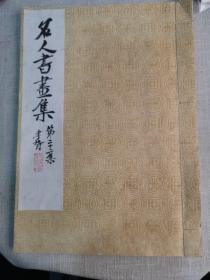 名人書畫集
第三集